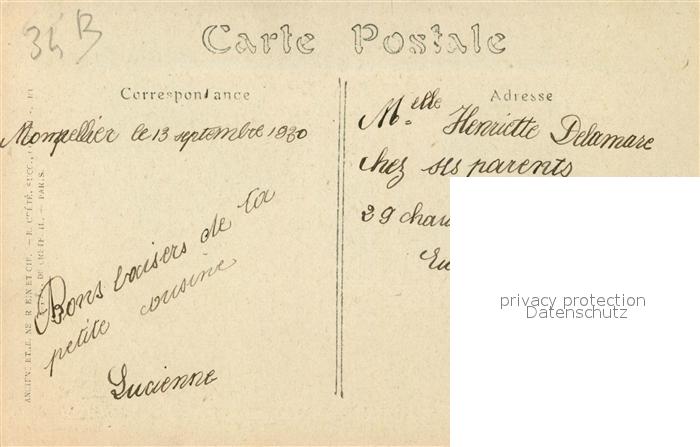 34 B
Carte Postale
Correspondance
Adresse
Mompellier le 13 septembre 1930
Bons baisers de la
petite cousine
Lucienne
Melle Henriette Delamare
chez ses parents
29
privacy protection
Datenschutz